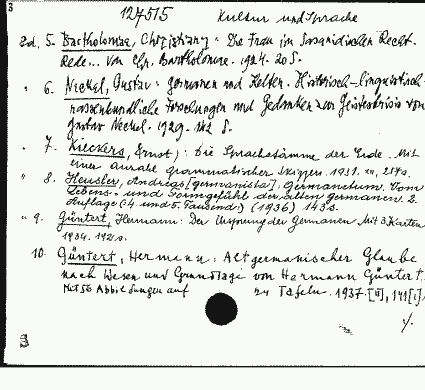 3
127515 Kultur und Sprache
Bd. 5. Bartholomae, Christian: Die Frau im Sasanidischen Recht.
Rede... von Chr. Bartholomae. 1924. 20 S.
" 6. Neckel, Gustav: Germanen und Kelten. Historisch-linguistisch-
rassenkundliche Forschungen und Gedanken zur Geisteskrisis von
Gustav Neckel. 1929. 142 S.
" 7. Kieckers, Ernst: Die Sprachstämme der Erde. Mit
einer Anzahl grammatischer Skizzen. 1931. 257 S.
" 8. Heusler, Andreas [Germanista]: Germanentum. Vom
Lebens- und Formgefühl der alten Germanen. 2.
Auflage (4. und 5. Tausend.) (1936) 143 S.
" 9. Güntert, Hermann: Der Ursprung der Germanen. Mit 3 Karten
1934. 192 S.
10. Güntert, Hermann: Altgermanischer Glaube
nach Wesen und Grundlage von Hermann Güntert.
Mit 56 Abbildungen auf Tafeln. 1937. [II], 141 [1]
./.
3